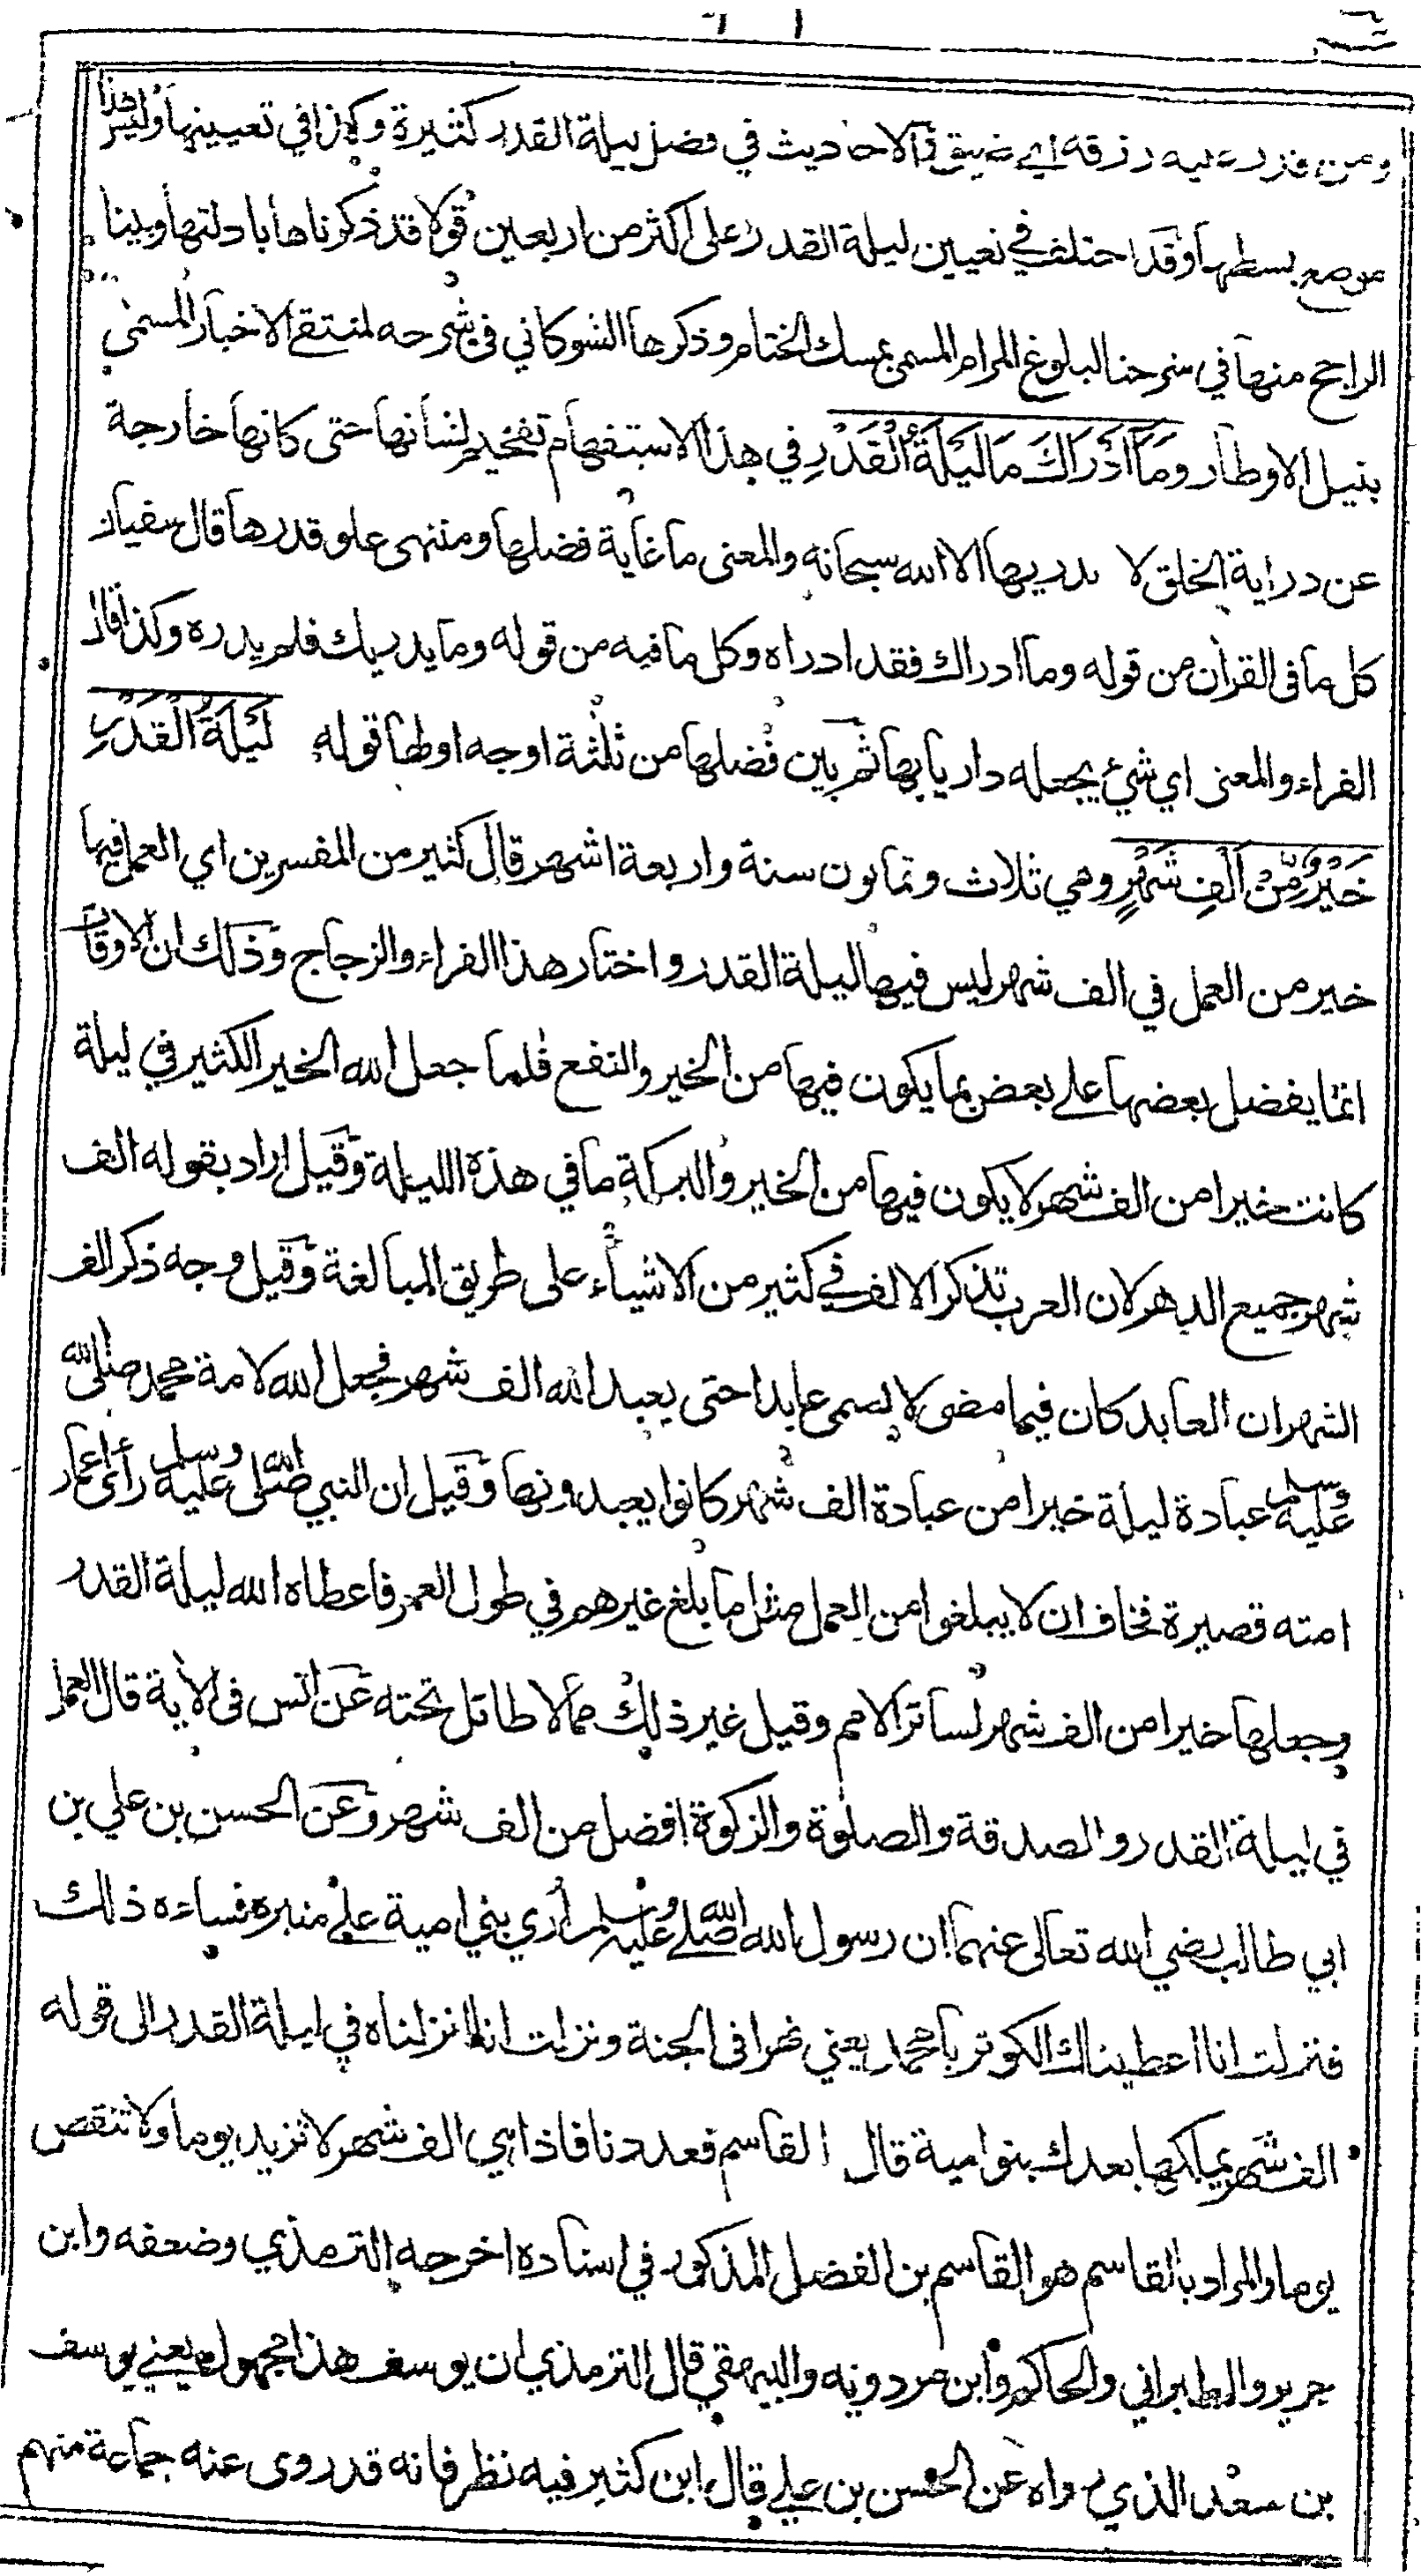 ومن قدر عليه رزقه اي ضيق والاحاديث في فضل ليلة القدر كثيرة وكذا في تعيينها وليس هذا
موضع بسطها وقد اختلف في تعيين ليلة القدر على اكثر من اربعين قولا قد ذكرناها بادلتها وبينا
الراجح منها في شرحنا لبلوغ المرام المسمى بمسك الختام وذكرها الشوكاني في شرحه لمنتقى الاخبار المسمى
بنيل الاوطار وَمَا أَدْرَاكَ مَا لَيْلَةُ الْقَدْرِ في هذا الاستفهام تفخيم لشانها حتى كانها خارجة
عن دراية الخلق لا يدريها الا الله سبحانه والمعنى ما غاية فضلها ومنتهى علو قدرها قال سفيان
كل ما في القرآن من قوله وما ادراك فقد ادراه وكل ما فيه من قوله وما يدريك فلم يدره وكذا قال
الفراء والمعنى اي شيء يجعله داريا بها ثم بين فضلها من ثلثة اوجه اولها قوله لَيْلَةُ الْقَدْرِ
خَيْرٌ مِّنْ أَلْفِ شَهْرٍ وهي ثلاث وثمانون سنة واربعة اشهر قال كثير من المفسرين اي العمل فيها
خير من العمل في الف شهر ليس فيها ليلة القدر واختار هذا الفراء والزجاج وذلك ان الاوقات
انما يفضل بعضها على بعض بما يكون فيها من الخير والنفع فلما جعل الله الخير الكثير في ليلة
كانت خيرا من الف شهر لا يكون فيها من الخير والبركة ما في هذه الليلة وقيل اراد بقوله الف
شهر جميع الدهر لان العرب تذكر الالف في كثير من الاشياء على طريق المبالغة وقيل وجه ذكر الف
الشهر ان العابد كان فيما مضى لا يسمى عابدا حتى يعبد الله الف شهر فجعل الله لامة محمد صلى الله
عليه وسلم عبادة ليلة خيرا من عبادة الف شهر كانوا يعبدونها وقيل ان النبي صلى الله عليه وسلم رأى اعمار
امته قصيرة فخاف ان لا يبلغوا من العمل مثل ما بلغ غيرهم في طول العمر فاعطاه الله ليلة القدر
وجعلها خيرا من الف شهر لسائر الامم وقيل غير ذلك مما لا طائل تحته عن انس في الآية قال العمل
في ليلة القدر والصدقة والصلوة والزكوة افضل من الف شهر وعن الحسن بن علي بن
ابي طالب رضي الله تعالى عنهما ان رسول الله صلى الله عليه وسلم أري بني امية على منبره فساءه ذلك
فنزلت انا اعطيناك الكوثر يا محمد يعني نهرا في الجنة ونزلت انا انزلناه في ليلة القدر الى قوله
الف شهر يملكها بعدك بنو امية قال القاسم فعددنا فاذا هي الف شهر لا تزيد يوما ولا تنقص
يوما والمراد بالقاسم هو القاسم بن الفضل المذكور في اسناده اخرجه الترمذي وضعفه وابن
جرير والطبراني والحاكم وابن مردويه والبيهقي قال الترمذي ان يوسف هذا مجهول يعني يوسف
بن سعد الذي رواه عن الحسن بن علي قال ابن كثير فيه نظر فانه قد روى عنه جماعة منهم